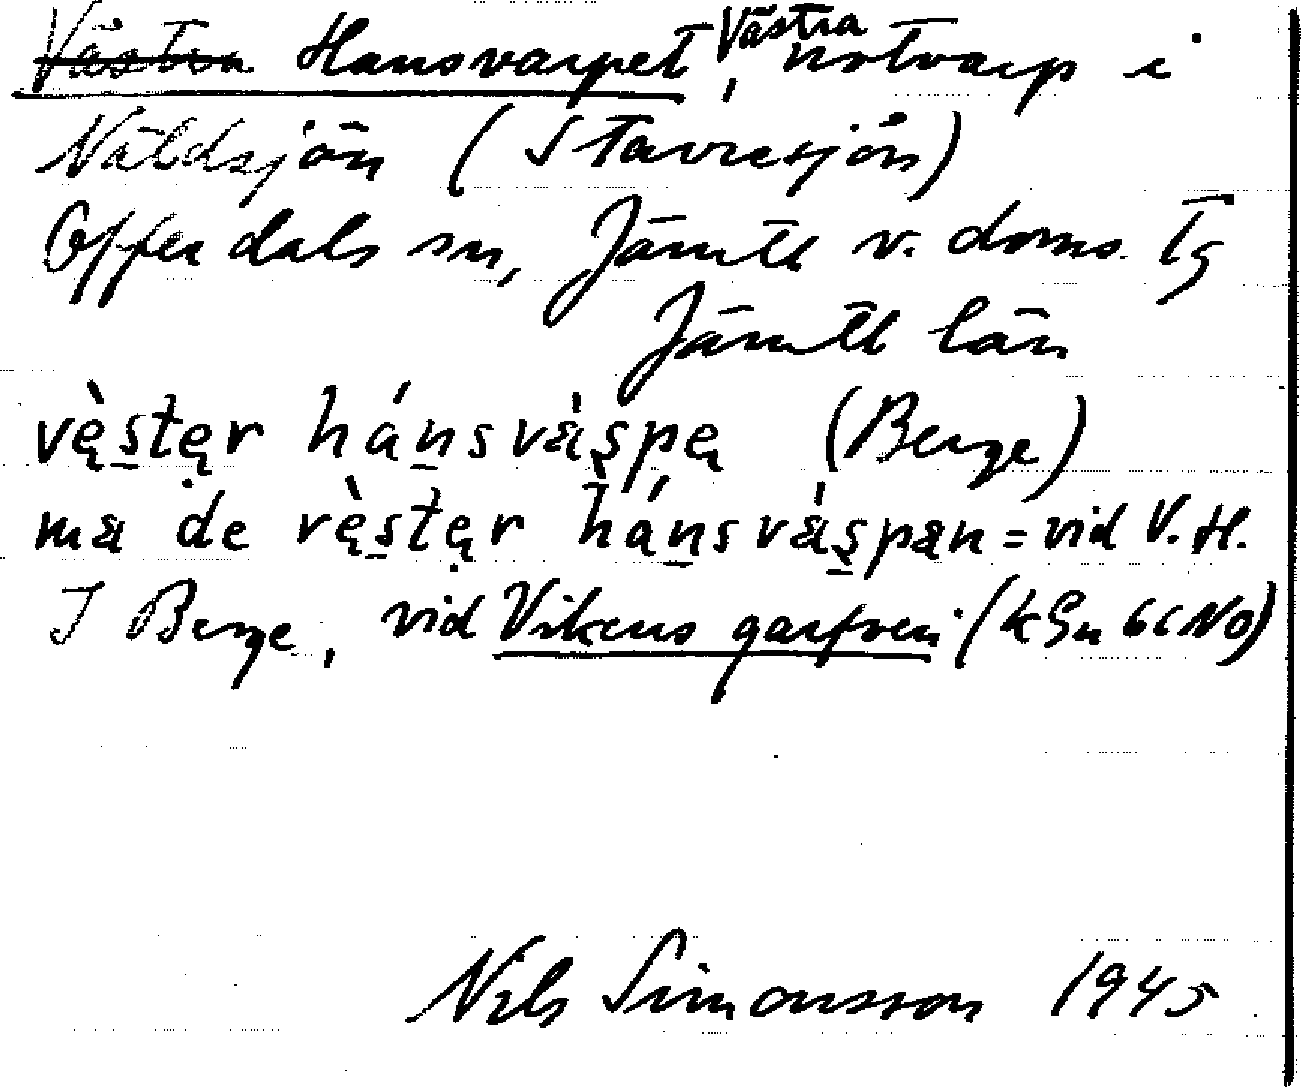 Västra Hansvarpet, Västra notvarp i
Näldsjön (Stavresjön)
Offerdals sn, Jämtl v. doms. Tg
Jämtl län
vę̀stęr hánsvàspę (Berge)
ma de vę̀stęr hánsvàspan = vid V. H.
I Berge, vid Vikens
Nils Simonsson 1945